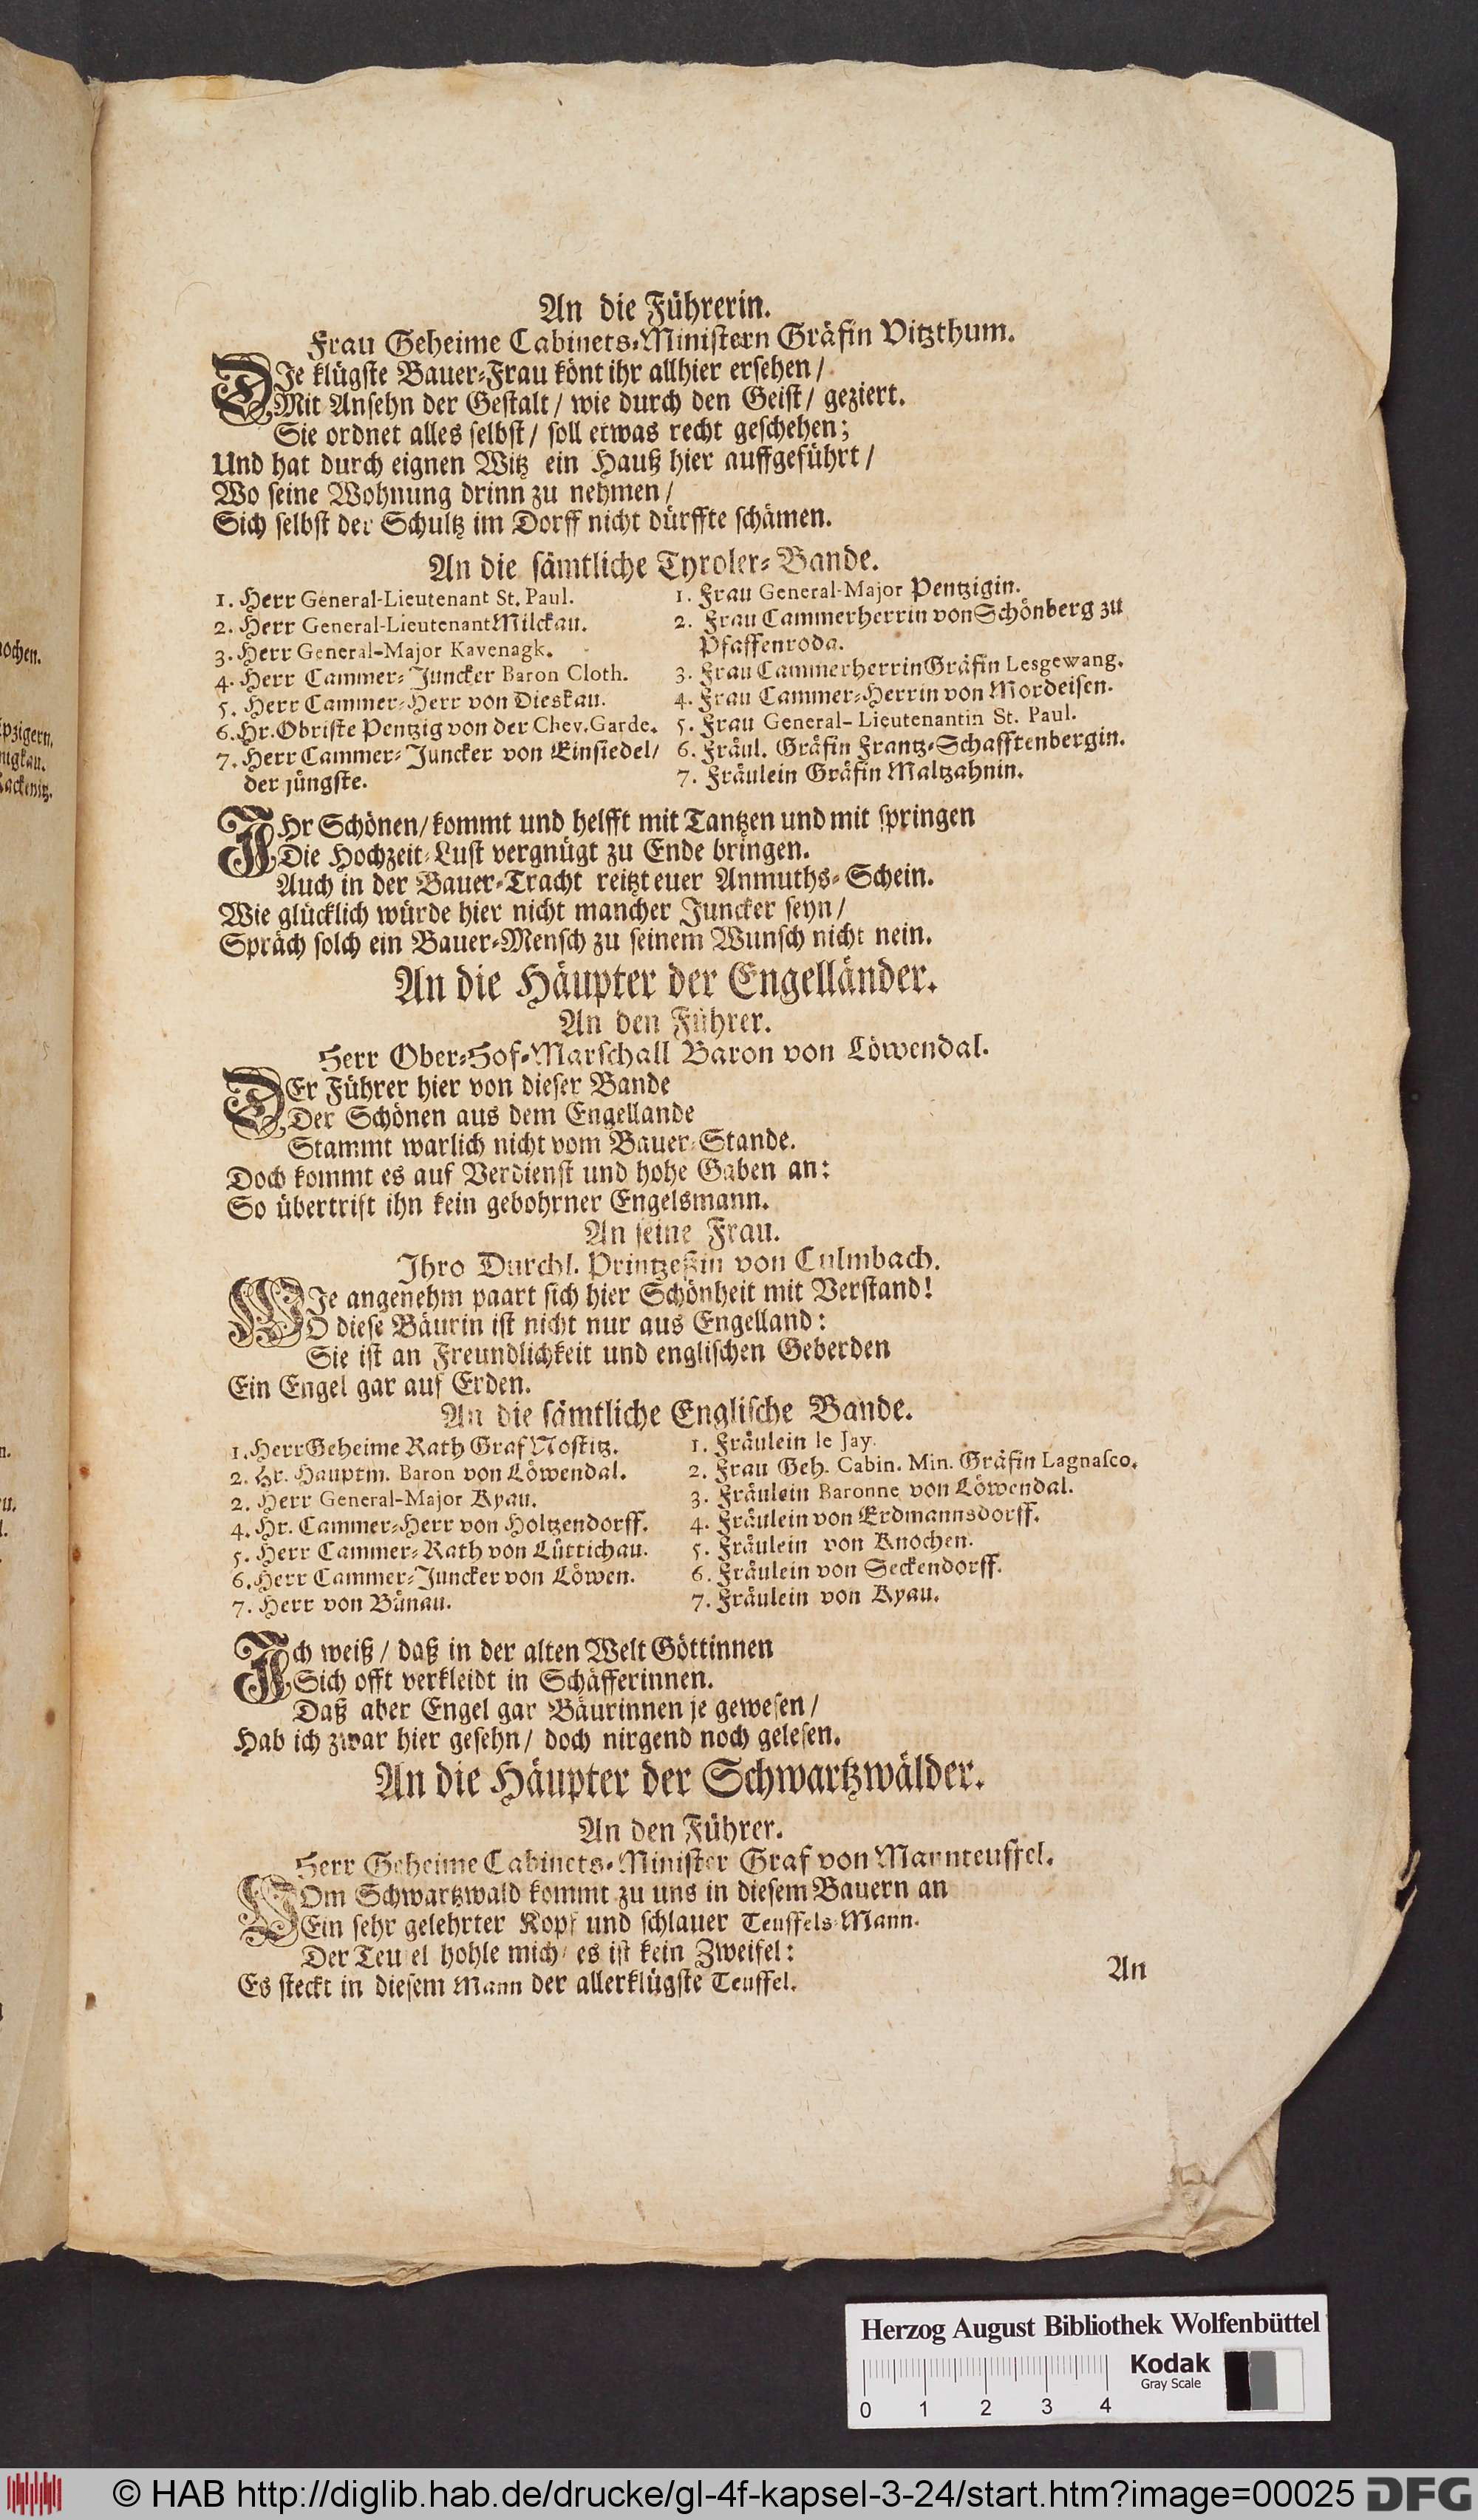 An die Führerin.
Frau Geheime Cabinets-Ministern Gräfin Vitzthum.
DIe klügste Bauer-Frau könt ihr allhier ersehen /
Mit Ansehn der Gestalt / wie durch den Geist / geziert.
Sie ordnet alles selbst / soll etwas recht geschehen;
Und hat durch eignen Witz ein Hauß hier auffgeführt /
Wo seine Wohnung drinn zu nehmen /
Sich selbst der Schultz im Dorff nicht dürffte schämen.
An die sämtliche Tyroler-Bande.
1. Herr General-Lieutenant St. Paul.
2. Herr General-Lieutenant Milckau.
3. Herr General-Major Kavenagk.
4. Herr Cammer-Juncker Baron Cloth.
5. Herr Cammer-Herr von Dieskau.
6. Hr. Obriste Pentzig von der Chev. Garde.
7. Herr Cammer-Juncker von Einsiedel /
der jüngste.
1. Frau General-Major Pentzigin.
2. Frau Cammerherrin von Schönberg zu
Pfaffenroda.
3. Frau Cammerherrin Gräfin Lesgewang.
4. Frau Cammer-Herrin von Mordeisen.
5. Frau General-Lieutenantin St. Paul.
6. Fräul. Gräfin Frantz-Schafftenbergin.
7. Fräulein Gräfin Maltzahnin.
IHr Schönen / kommt und helfft mit Tantzen und mit springen
Die Hochzeit-Lust vergnügt zu Ende bringen.
Auch in der Bauer-Tracht reitzt euer Anmuths-Schein.
Wie glücklich würde hier nicht mancher Juncker seyn /
Spräch solch ein Bauer-Mensch zu seinem Wunsch nicht nein.
An die Häupter der Engelländer.
An den Führer.
Herr Ober-Hof-Marschall Baron von Löwendal.
DEr Führer hier von dieser Bande
Der Schönen aus dem Engellande
Stammt warlich nicht vom Bauer-Stande.
Doch kommt es auf Verdienst und hohe Gaben an:
So übertrift ihn kein gebohrner Engelsmann.
An seine Frau.
Ihro Durchl. Printzeßin von Culmbach.
WIe angenehm paart sich hier Schönheit mit Verstand!
O diese Bäurin ist nicht nur aus Engelland:
Sie ist an Freundlichkeit und englischen Geberden
Ein Engel gar auf Erden.
An die sämtliche Englische Bande.
1. Herr Geheime Rath Graf Nostitz.
2. Hr. Hauptm. Baron von Löwendal.
2. Herr General-Major Kyau.
4. Hr. Cammer-Herr von Holtzendorff.
5. Herr Cammer-Rath von Lüttichau.
6. Herr Cammer-Juncker von Löwen.
7. Herr von Bünau.
1. Fräulein le Jay.
2. Frau Geh. Cabin. Min. Gräfin Lagnasco.
3. Fräulein Baronne von Löwendal.
4. Fräulein von Erdmannsdorff.
5. Fräulein von Knochen.
6. Fräulein von Seckendorff.
7. Fräulein von Kyau.
Ich weiß / daß in der alten Welt Göttinnen
Sich offt verkleidt in Schäfferinnen.
Daß aber Engel gar Bäurinnen je gewesen /
Hab ich zwar hier gesehn / doch nirgend noch gelesen.
An die Häupter der Schwartzwälder.
An den Führer.
Herr Geheime Cabinets-Minister Graf von Mannteuffel.
VOm Schwartzwald kommt zu uns in diesem Bauern an
Ein sehr gelehrter Kopf und schlauer Teuffels-Mann.
Der Teufel hohle mich / es ist kein Zweifel:
Es steckt in diesem Mann der allerklügste Teuffel.
An
ochen.
ipzigern.
nigkau.
Kackenitz.
Herzog August Bibliothek Wolfenbüttel
Kodak
Gray Scale
0 1 2 3 4
© HAB http://diglib.hab.de/drucke/gl-4f-kapsel-3-24/start.htm?image=00025
DFG